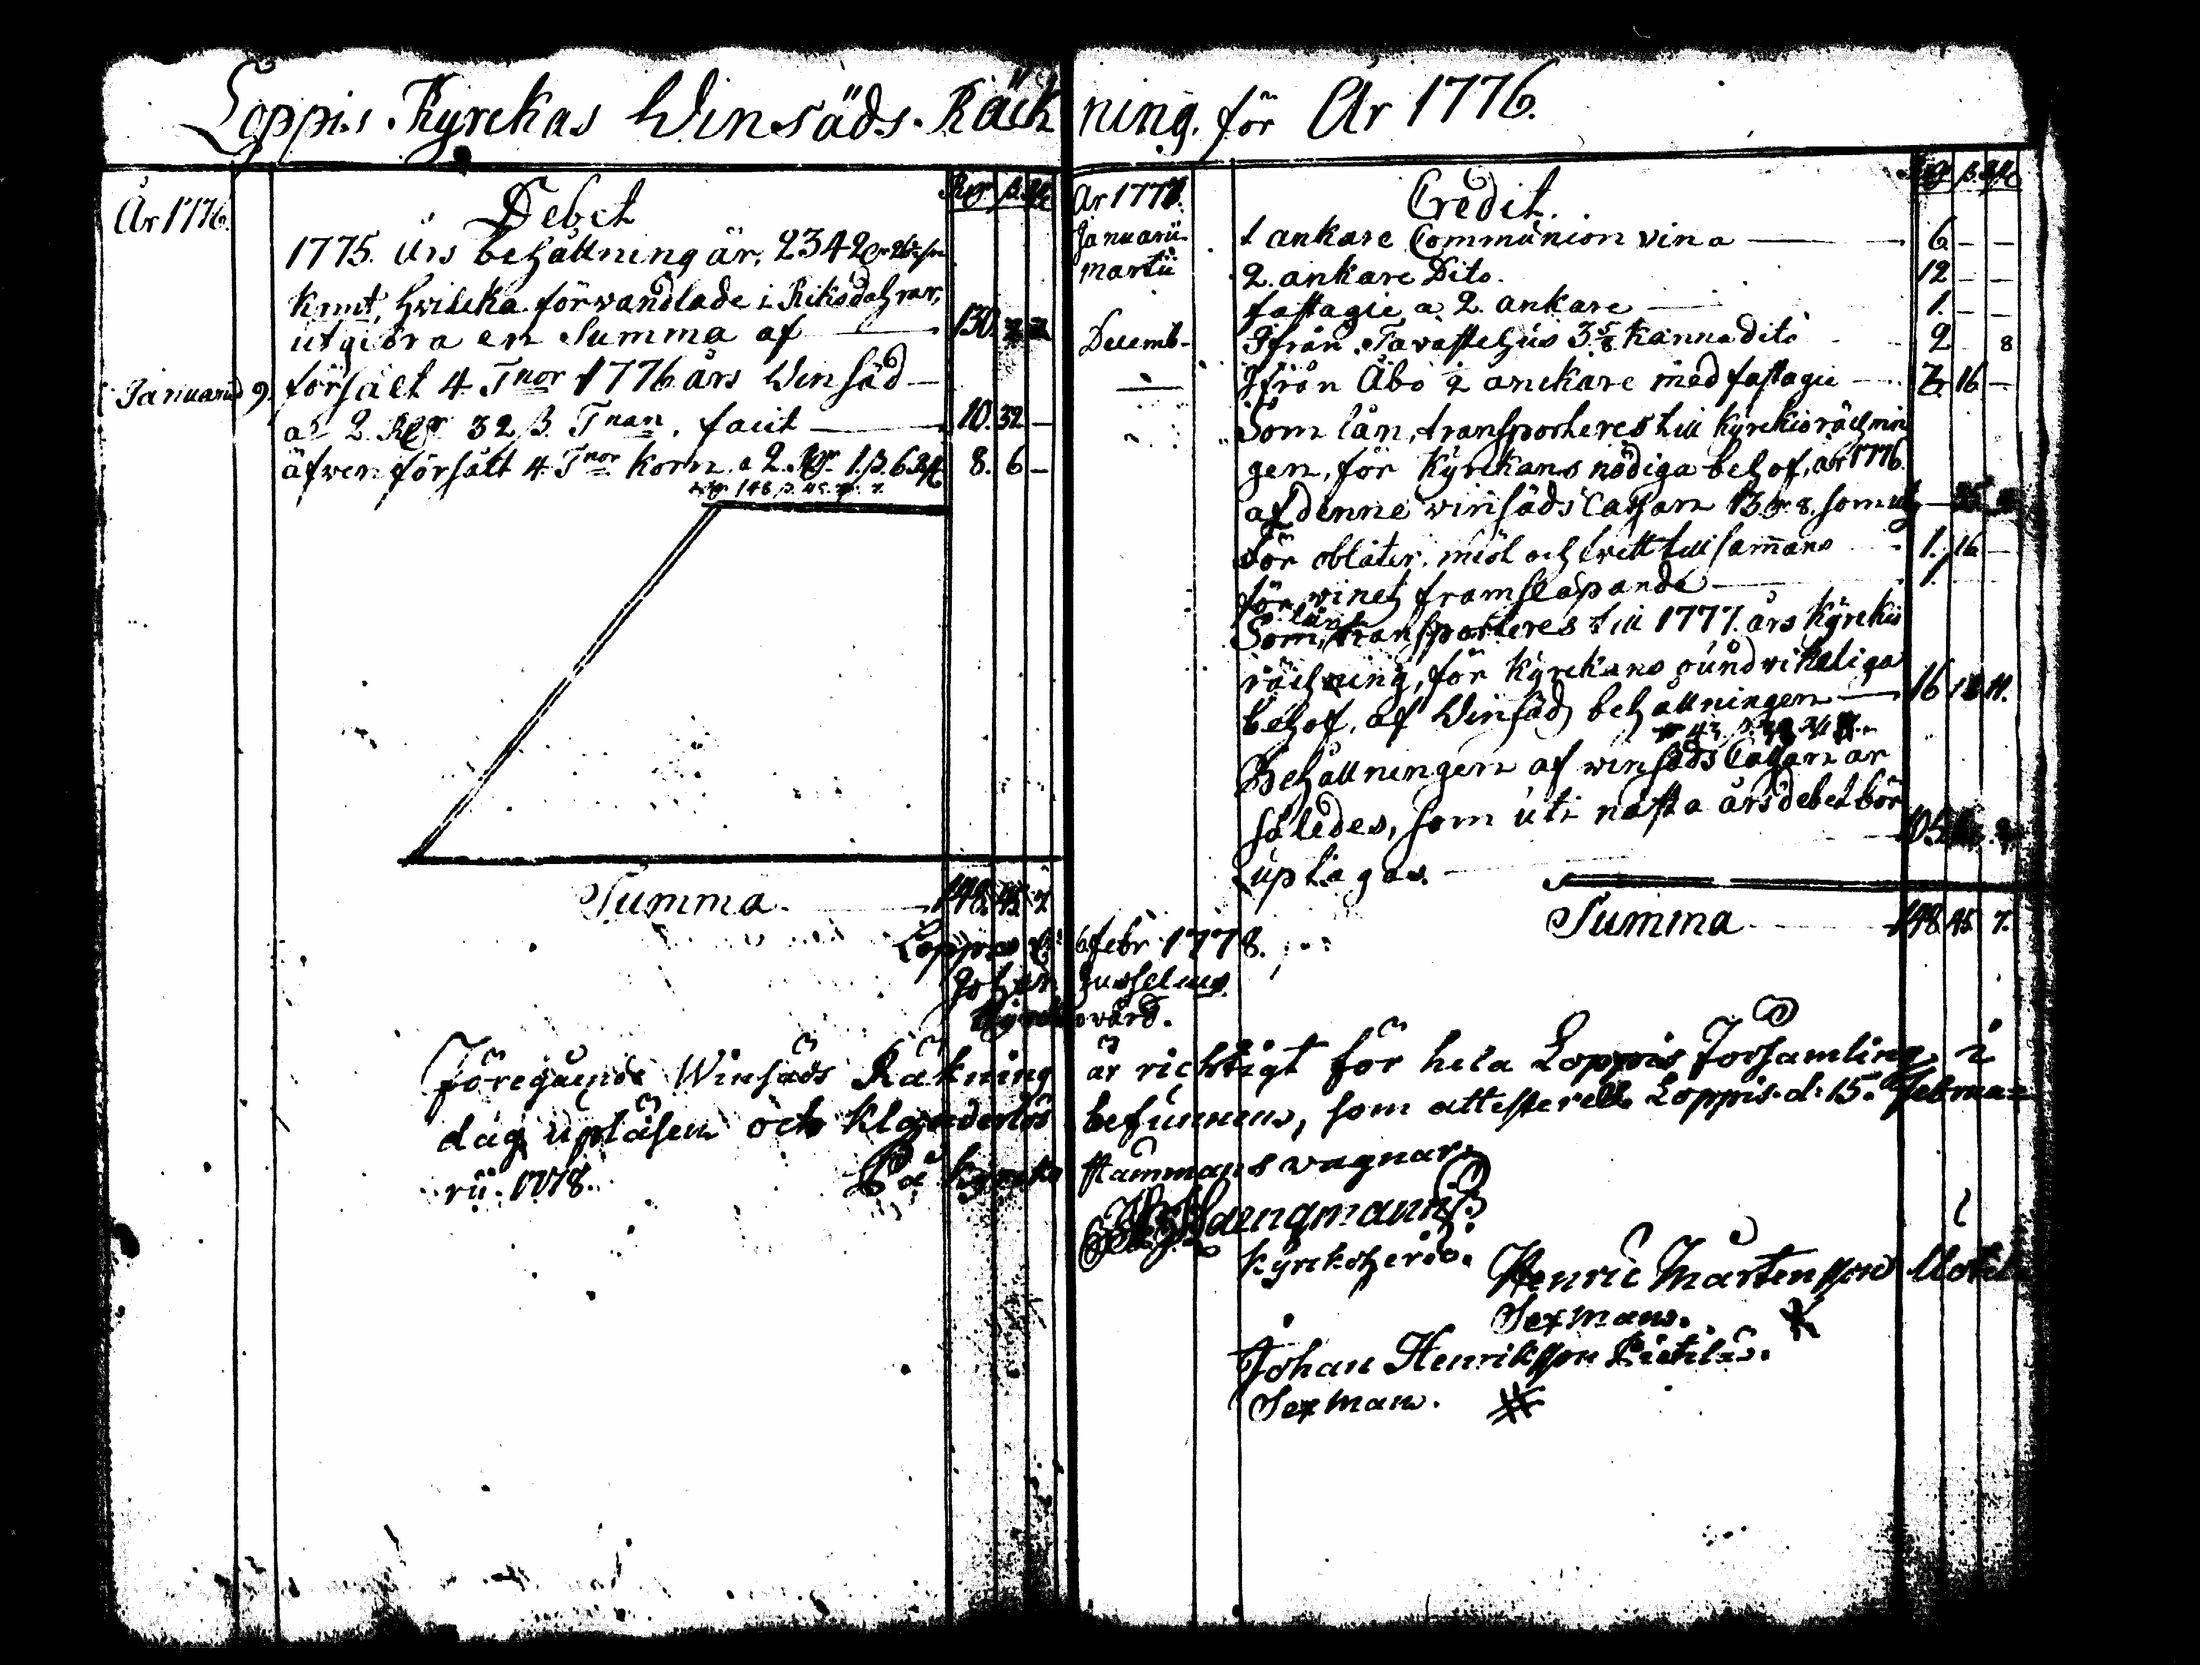 Loppis Kyrckas Winsäds Räckning för År 1776.
År 1776. Debet Rdr ß
1775. års behållning är, 2342
kmt, hvilcka förvandlade i Riksdahrar,
utgiöra en Summa af — 130.
Januarii 9. försålt 4 Tnor 1776 års Winsäd —
a 2. Rdr 32 ß. Tnan. facit — 10. 32 —
äfwen försålt 4 Tnor korn a 2. Rdr 1. ß. 6 8. 6 —
148
Summa 148. 45. 7
År 1776. Credit.
Januarii 1 ankare Communion vin a — 6 — —
Martii 2. ankare Dito. 12 — —
fastagie a 2. ankare — 1. — —
Decemb. Ifrån Tavastehus 3 5/8 kanna dito 2 8
— Ifrån Åbo 2 anckare med fastagie — 7 16 —
Som lån, transporteres till kyrkioräcknin
gen, för kyrckans nödiga behof, år 1776.
af denne winsäds Cassan 13
för oblater, miöl och hvitt tillsammans 1. 16 —
för winetz framsläpande — 1.
Som lån transporteres till 1777. års kyrckio
räckning, för kyrckans oundvikeliga
behof, af Winsäds behållningen — 16 11.
Behållningen af winsäds Cassan är
således, som uti nästa års debet bör
uptagas. — 105
Summa 148. 45. 7.
Loppis d. 6 febr. 1778.
Johan Jusselius
Kyrckovärd.
Föregående Winsäds Räkning är richtigt för hela Loppis Församling i
dag upläsen och klanderlös befunnen, som attesterer Loppis d. 15. Februa=
rii. 1778. På kyrcko stämmans vägnar
Haengmann
kyrckoherde. Henric Mårtensson
Sexman.
Johan Henriksson Pietilä.
Sexman.